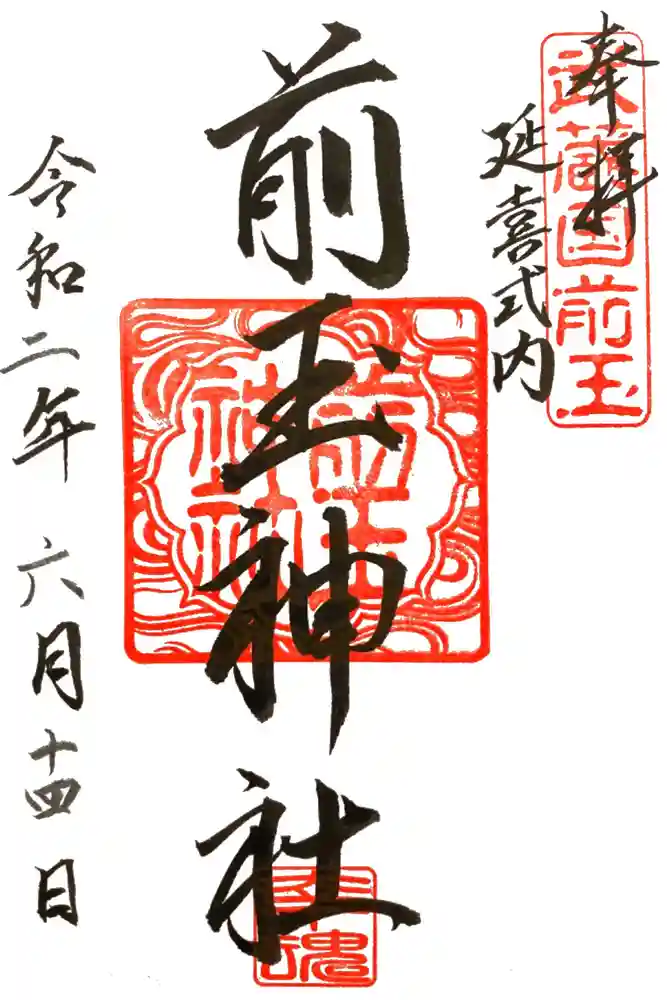 奉拝
武蔵国前玉
延喜式内
前玉神社
前玉神社
幸魂
令和二年 六月十四日